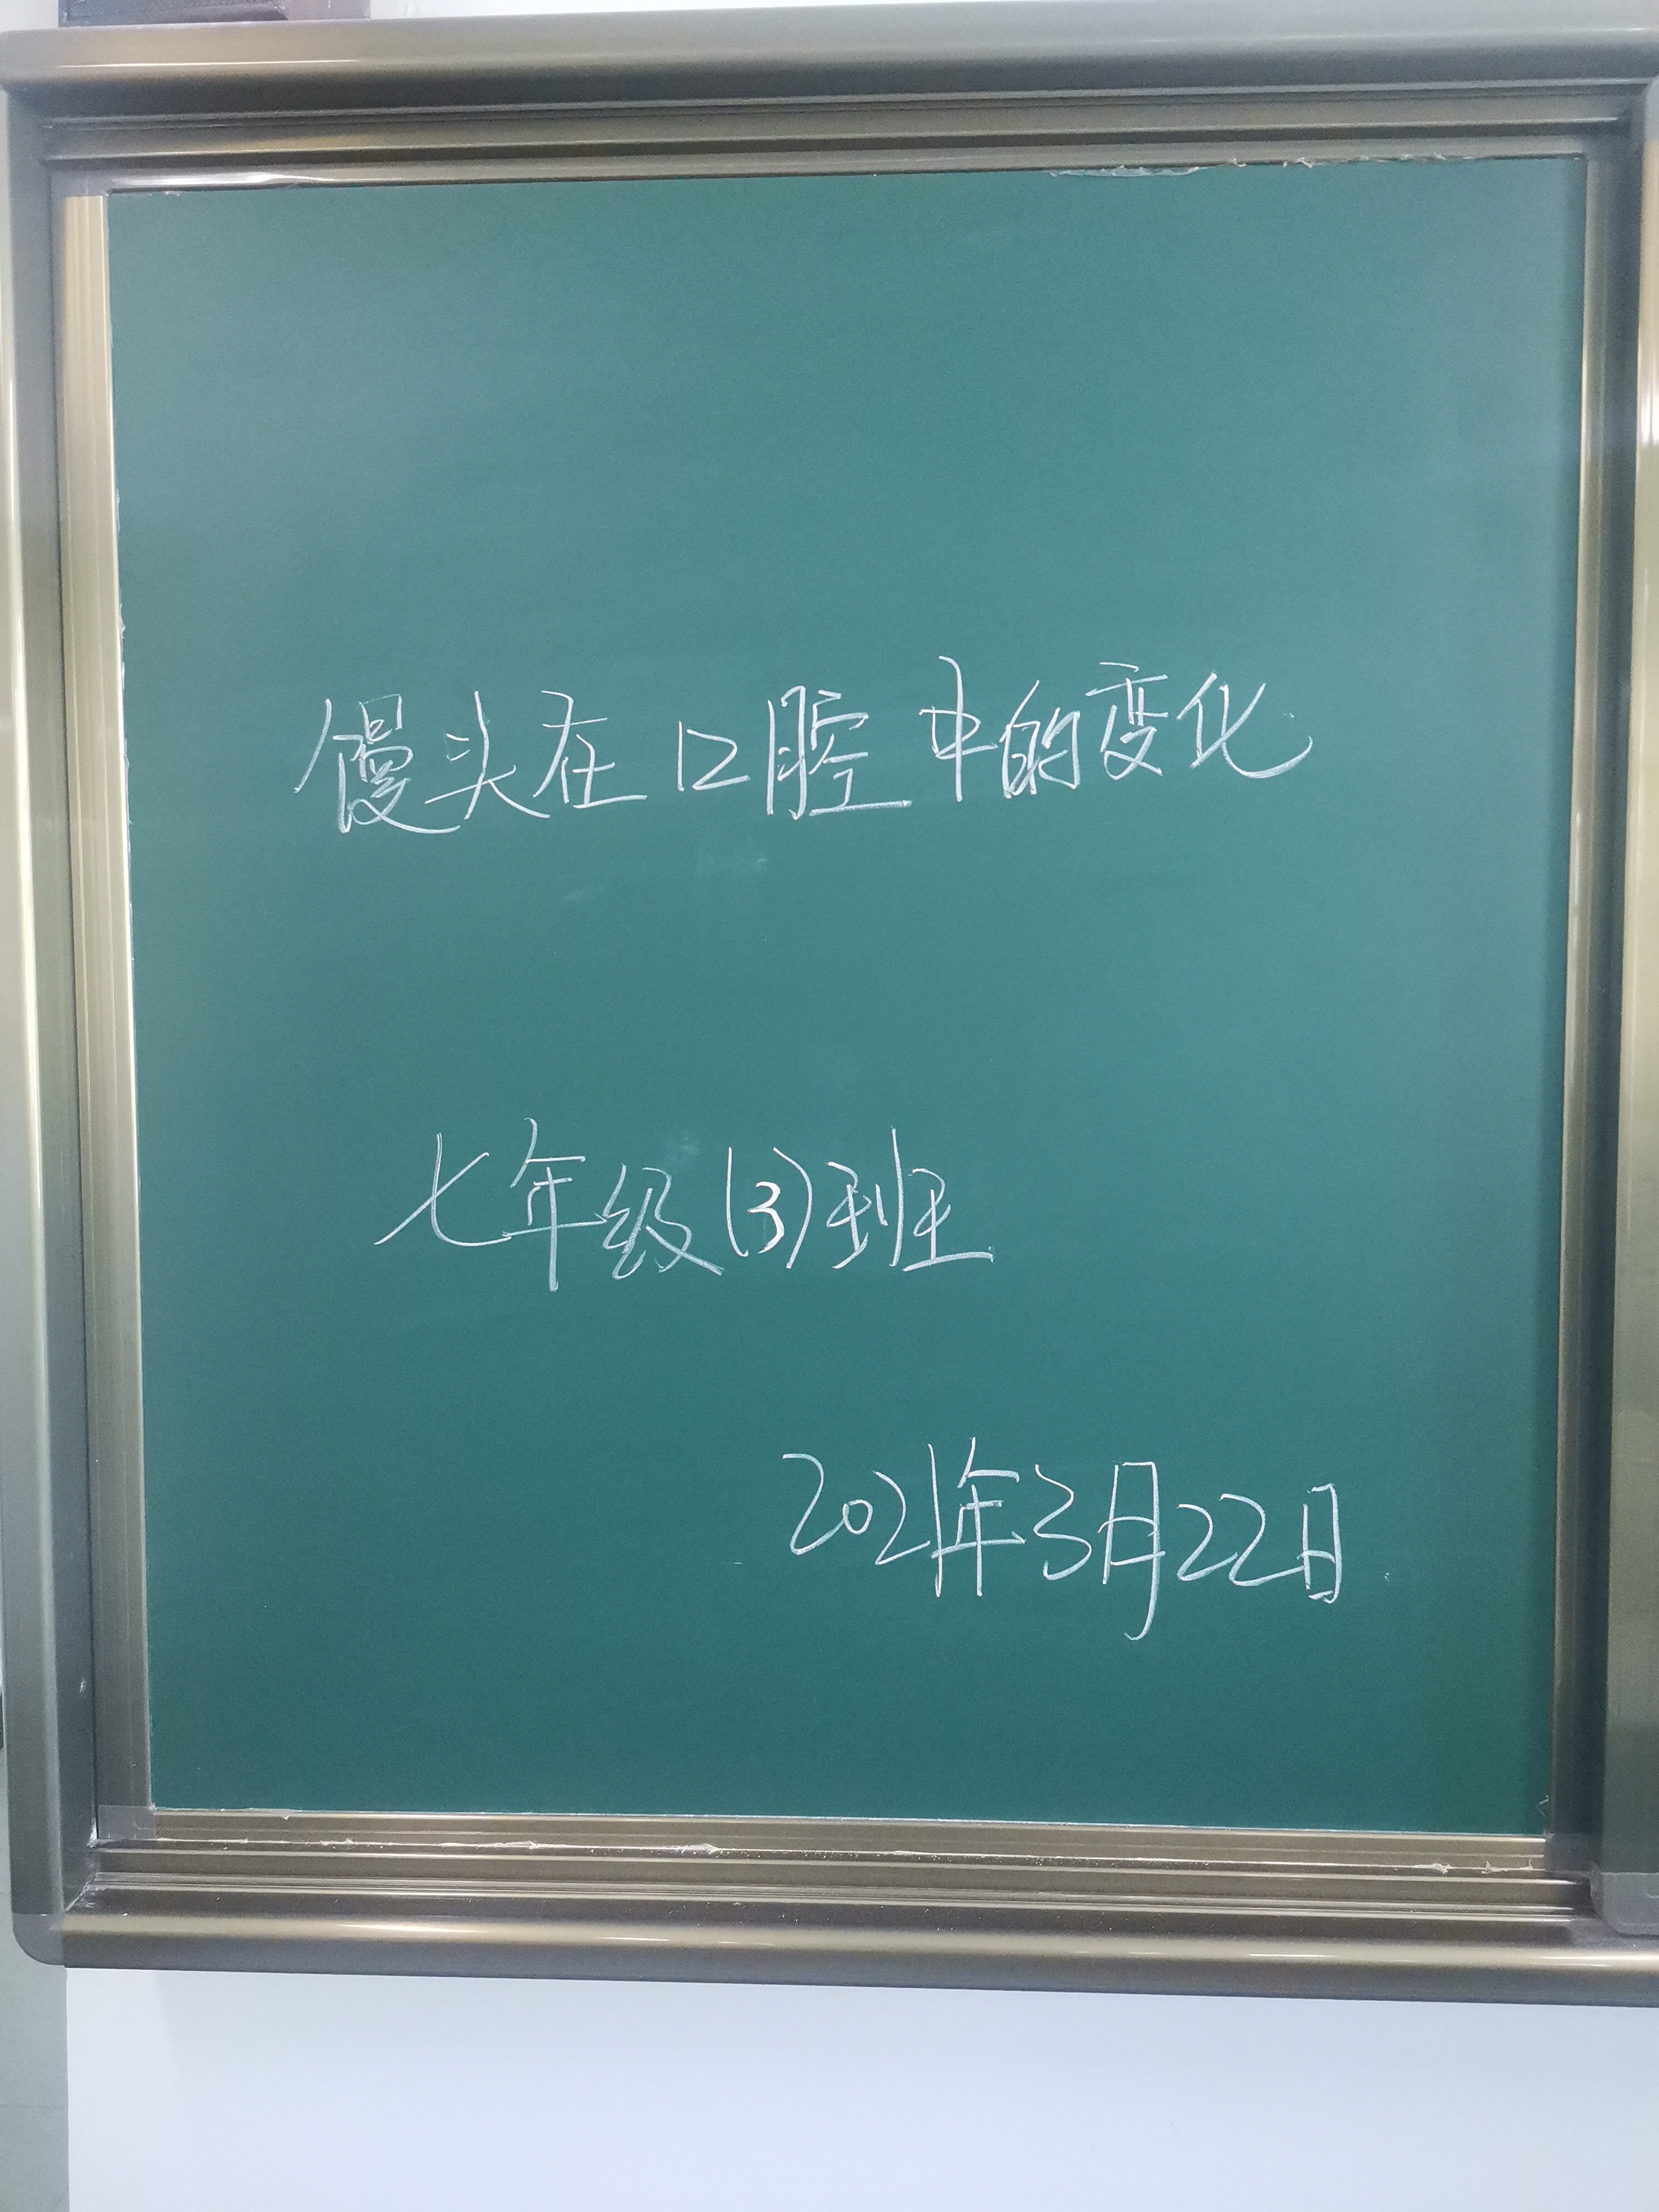 馒头在口腔中的变化
七年级(3)班
2021年3月22日